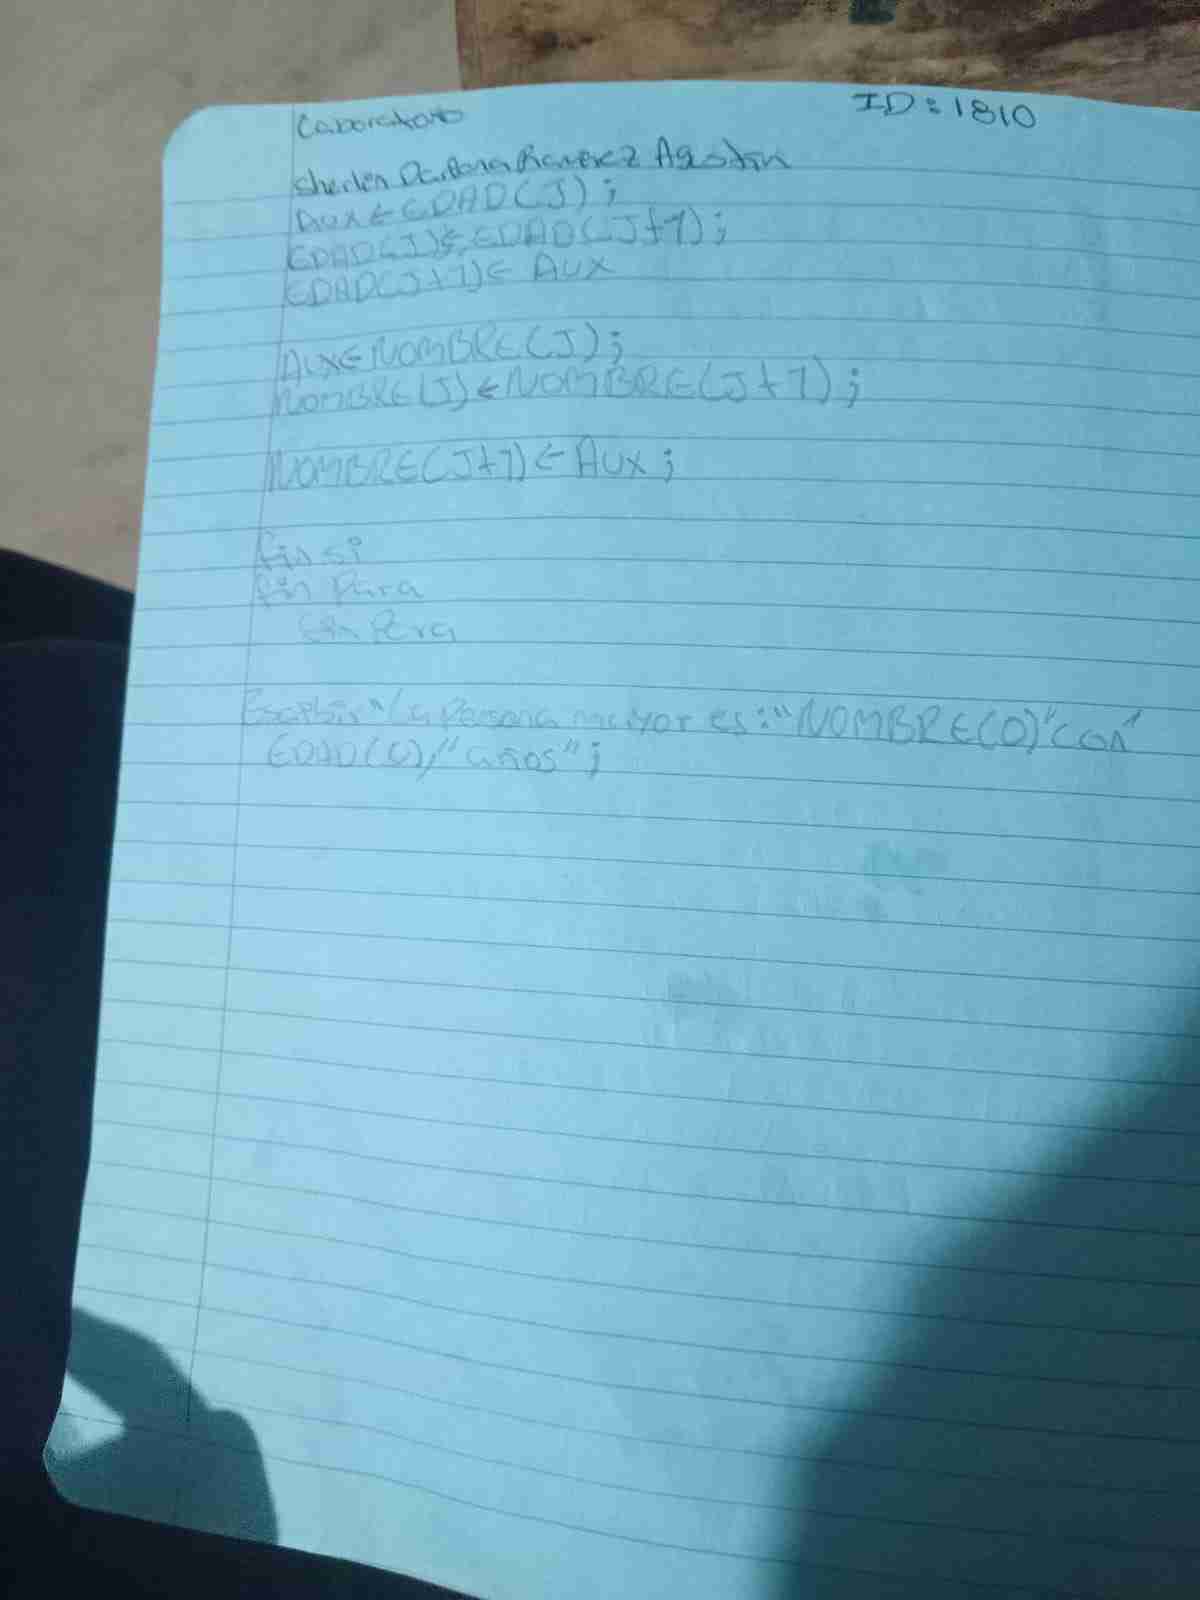 Laboratorio
ID: 1810
Ramirez Agustin
AUX ← EDAD(J);
EDAD(J) ← EDAD(J+1);
EDAD(J+1) ← AUX
AUX ← NOMBRE(J);
NOMBRE(J) ← NOMBRE(J+1);
NOMBRE(J+1) ← AUX;
fin si
fin Para
fin Para
Escribir "La Persona mayor es:" NOMBRE(0) "con"
EDAD(0), "años";